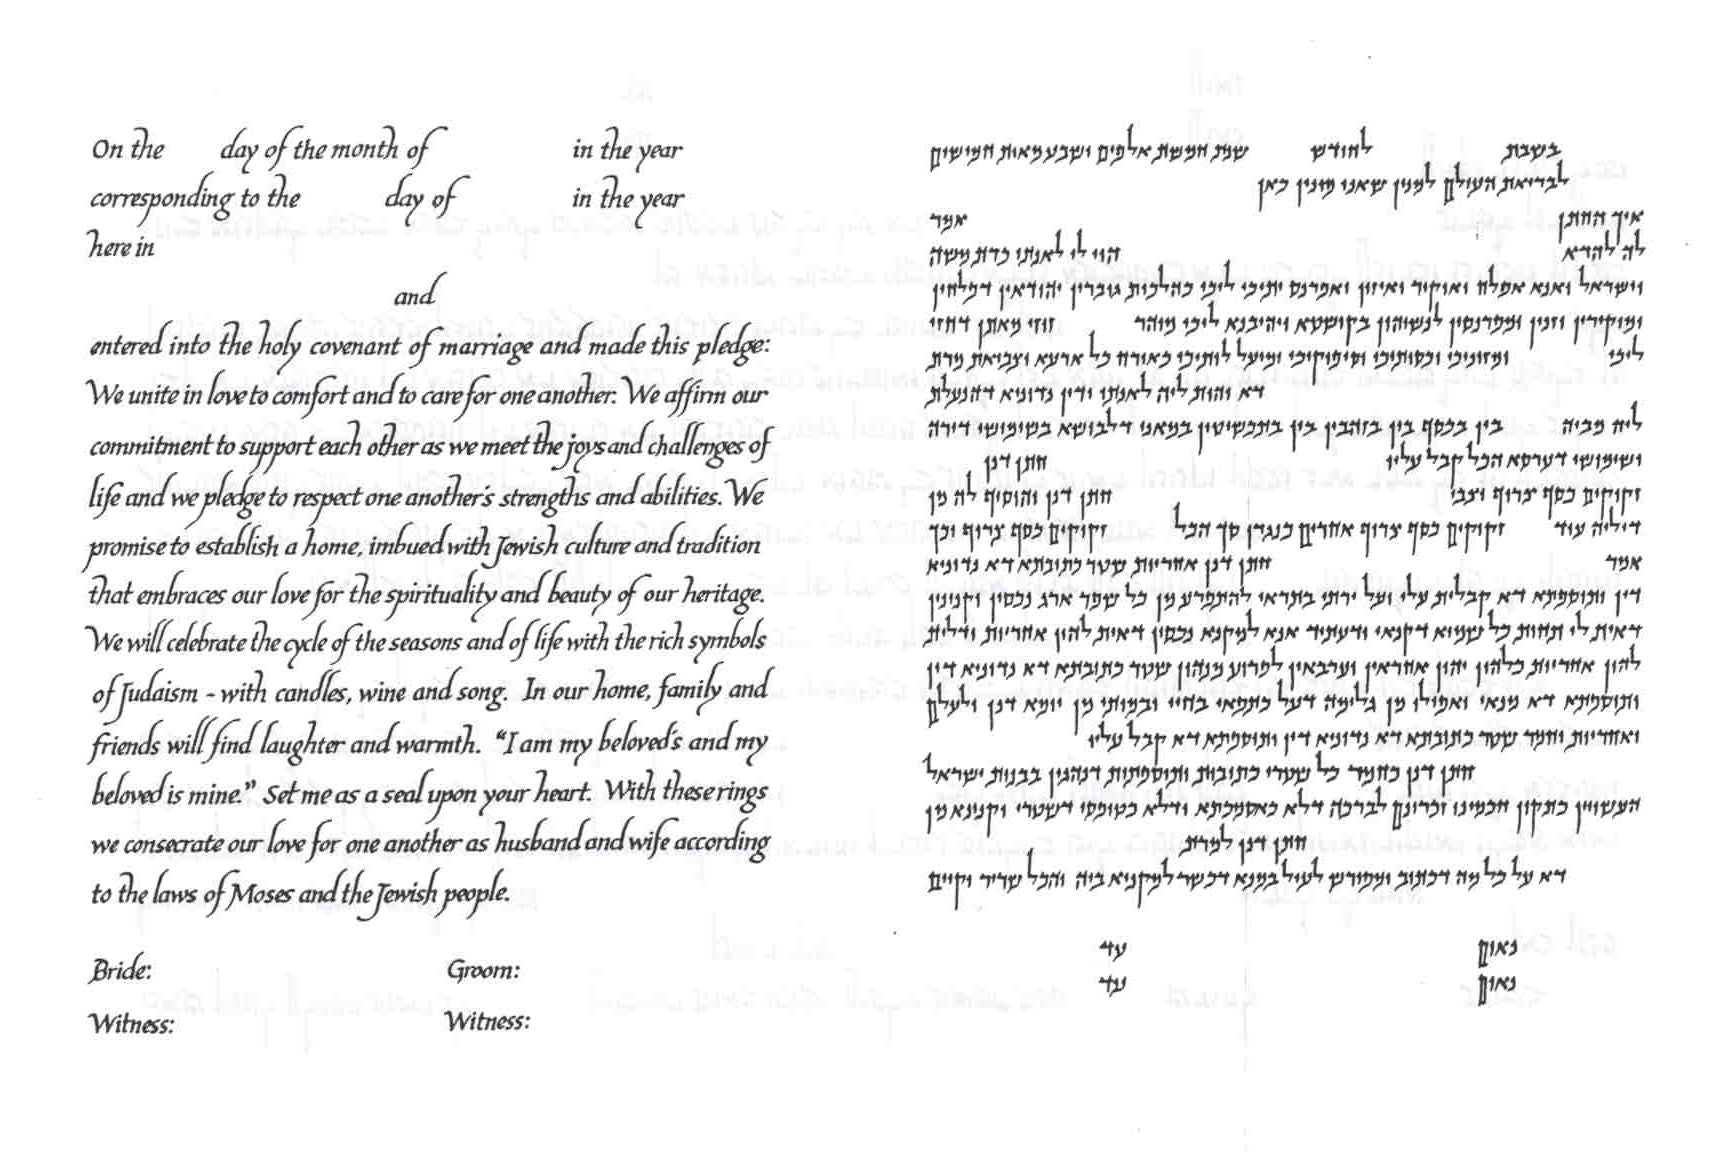 On the day of the month of in the year
corresponding to the day of in the year
here in
and
entered into the holy covenant of marriage and made this pledge:
We unite in love to comfort and to care for one another. We affirm our
commitment to support each other as we meet the joys and challenges of
life and we pledge to respect one another's strengths and abilities. We
promise to establish a home, imbued with Jewish culture and tradition
that embraces our love for the spirituality and beauty of our heritage.
We will celebrate the cycle of the seasons and of life with the rich symbols
of Judaism - with candles, wine and song. In our home, family and
friends will find laughter and warmth. "I am my beloved's and my
beloved is mine." Set me as a seal upon your heart. With these rings
we consecrate our love for one another as husband and wife according
to the laws of Moses and the Jewish people.
Bride: Groom:
Witness: Witness:
בשבת לחודש שנת חמשת אלפים ושבע מאות חמישים
לבריאת העולם למנין שאנו מונין כאן
איך החתן אמר
לה להדא הוי לי לאנתו כדת משה
וישראל ואנא אפלח ואוקיר ואיזון ואפרנס יתיכי ליכי כהלכות גוברין יהודאין דפלחין
ומוקירין וזנין ומפרנסין לנשיהון בקושטא ויהיבנא ליכי מוהר זוזי מאתן דחזי
ליכי ומזוניכי וכסותיכי וסיפוקיכי ומיעל לותיכי כאורח כל ארעא וצביאת מרת
דא והות ליה לאנתו ודין נדוניא דהנעלת
ליה מביה בין בכסף בין בזהב בין בתכשיטין במאני דלבושא בשימושי דירה
ושימושי דערסא הכל קבל עליו חתן דנן
זקוקים כסף צרוף וצבי חתן דנן והוסיף לה מן
דיליה עוד זקוקים כסף צרוף אחרים כנגדן סך הכל זקוקים כסף צרוף וכך
אמר חתן דנן אחריות שטר כתובתא דא נדוניא
דין ותוספתא דא קבלית עלי ועל ירתי בתראי להתפרע מן כל שפר ארג נכסין וקנינין
דאית לי תחות כל שמיא דקנאי ודעתיד אנא למקנא נכסין דאית להון אחריות ודלית
להון אחריות כלהון יהון אחראין וערבאין לפרוע מנהון שטר כתובתא דא נדוניא דין
ותוספתא דא מנאי ואפילו מן גלימה דעל כתפאי בחיי ובמותי מן יומא דנן ולעלם
ואחריות וחמר שטר כתובתא דא נדוניא דין ותוספתא דא קבל עליו
חתן דנן כחמר כל שטרי כתובות ותוספתות דנהגין בבנות ישראל
העשויין כתקון חכמינו זכרונם לברכה דלא כאסמכתא ודלא כטופסי דשטרי וקנינא מן
חתן דנן למרת
דא על כל מה דכתוב ומפורש לעיל במנא דכשר למקניא ביה והכל שריר וקיים
נאום עד
נאום עד